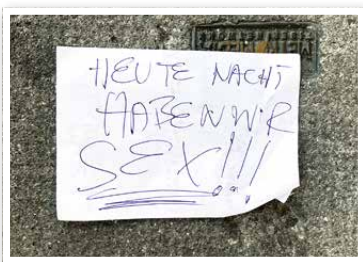 HEUTE NACHT
HABEN WIR
SEX!!!